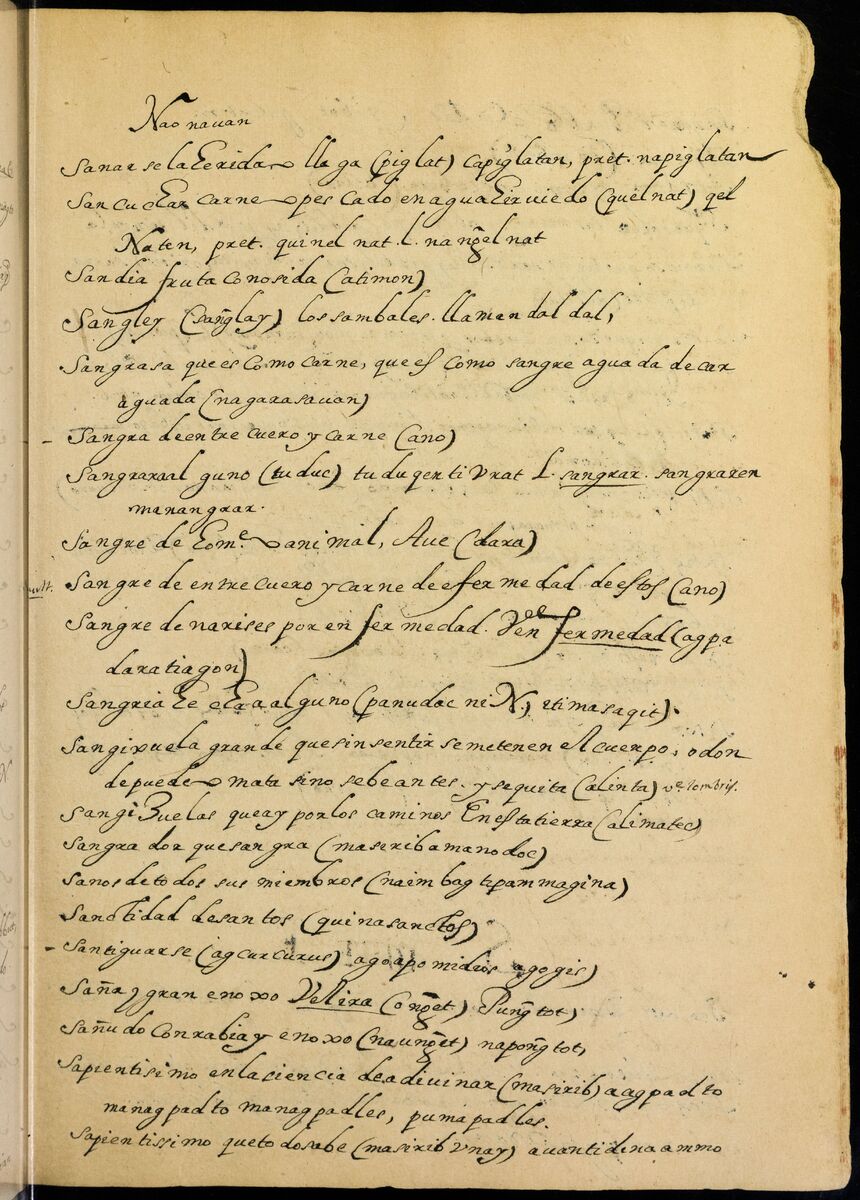 Naonauan
Sanar se la Eerida o llaga (piglat) capiglatan, pret. napiglatan
San cu Ear carne o pescado en agua Eiruiedo (quelnat) qel
Naten, pret. quinelnat l. nang̃elnat
Sandia fruta conosida (atimon)
Sangley (sang̃lay) los sambales llaman dal dal,
Sangrasa que es como carne, que es como sangre aguada de car
aguada (nagarasauan)
Sangra de entre cuero y carne (ano)
Sangrara alguno (tuduc) tuduqen ti Vrat l. sangrar. sangraren
manangrar.
Sangre de Eom.e o animal, Aue (dara)
Sangre de entre cuero y carne de efermedad de estos (ano)
Sangre de narises por enfermedad. Vee enfermedad (agpa
daratiagon)
Sangria Ee cEa a alguno (panudoc ni N., iti masaqit).
Sangixuela grande que sin sentir se meten en el cuerpo, o don
de puede o mata si no sebe antes. y se quita (alinta) ve lombris.
Sangi Buelas que ay por los caminos En esta tierra (alimatec)
Sangrador que sangra (masirib a manodoc)
Sanos de todos sus miembros (naimbag ti pammagina)
Sanctidad de santos (quinasanctos)
Santiguarse (agcurcurus) agoapo midios agogis)
Saña, y gran enoxo Ve llira (ong̃et) Pung̃tot,
Sañudo con rabia y enoxo (naung̃et) napong̃tot,
Sapientisimo en la siencia de adiuinar (masirib) a agpadto
manag padto managpadles, pumapadles.
Sapientissimo que todo sabe (masirib Vnay) a uan ti dina ammo